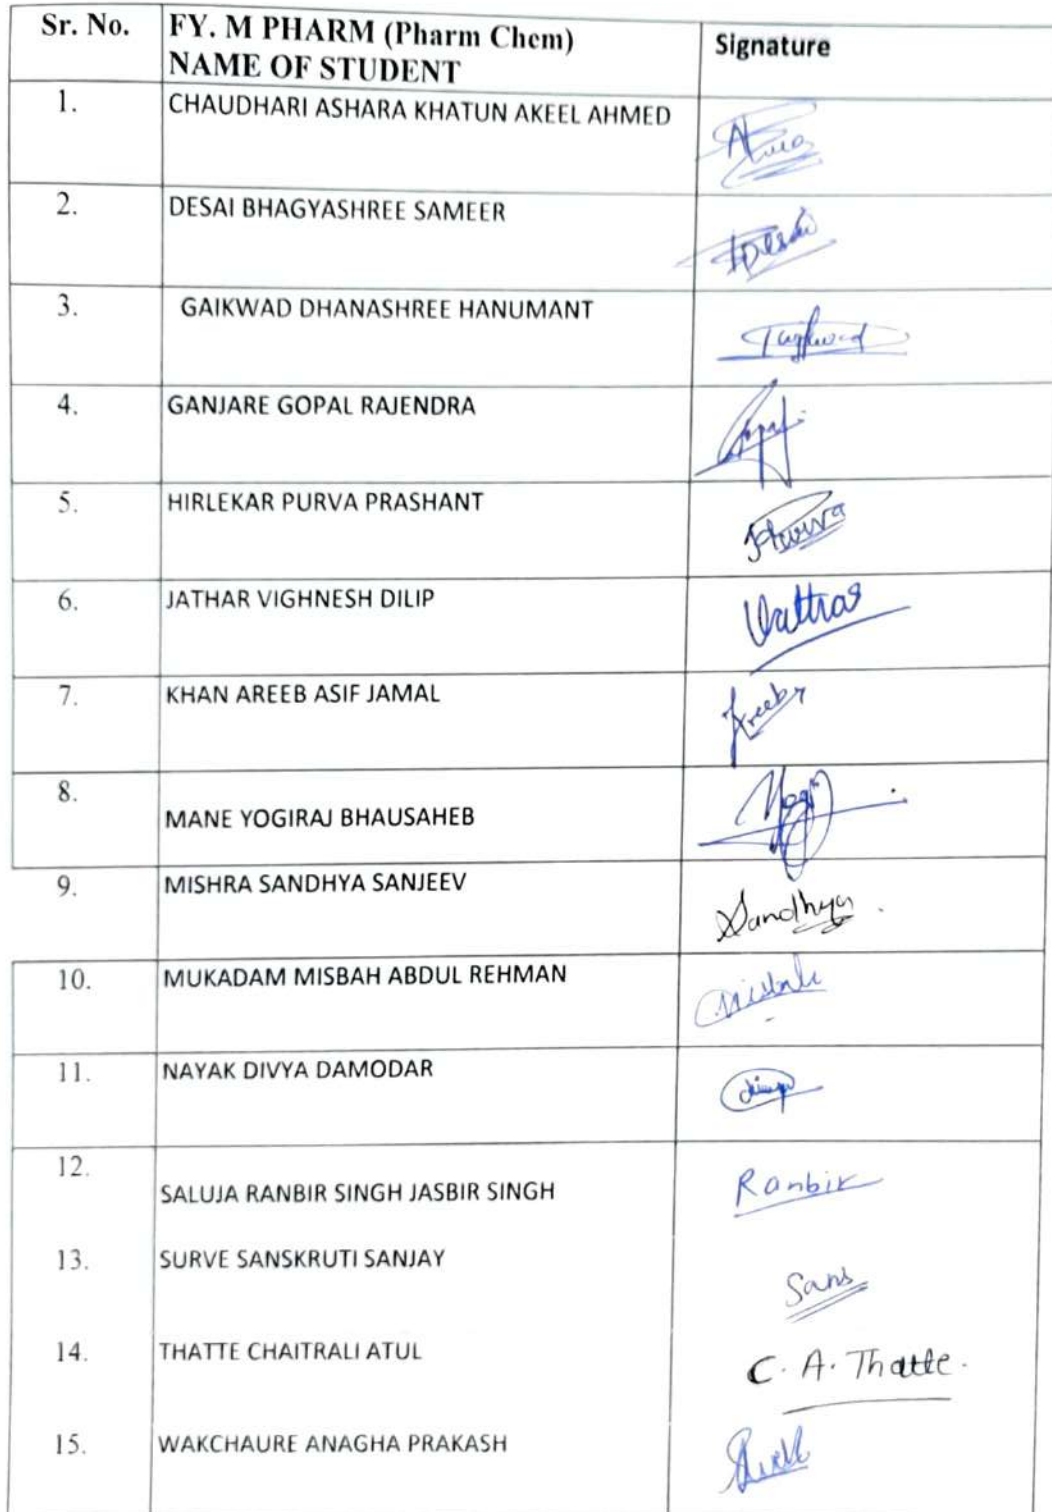 Sr. No. FY. M PHARM (Pharm Chem) Signature
NAME OF STUDENT
1. CHAUDHARI ASHARA KHATUN AKEEL AHMED
2. DESAI BHAGYASHREE SAMEER
3. GAIKWAD DHANASHREE HANUMANT
4. GANJARE GOPAL RAJENDRA
5. HIRLEKAR PURVA PRASHANT
6. JATHAR VIGHNESH DILIP
7. KHAN AREEB ASIF JAMAL
8. MANE YOGIRAJ BHAUSAHEB
9. MISHRA SANDHYA SANJEEV Sandhya.
10. MUKADAM MISBAH ABDUL REHMAN
11. NAYAK DIVYA DAMODAR
12. SALUJA RANBIR SINGH JASBIR SINGH Ranbir
13. SURVE SANSKRUTI SANJAY Sans
14. THATTE CHAITRALI ATUL C. A. Thatte.
15. WAKCHAURE ANAGHA PRAKASH